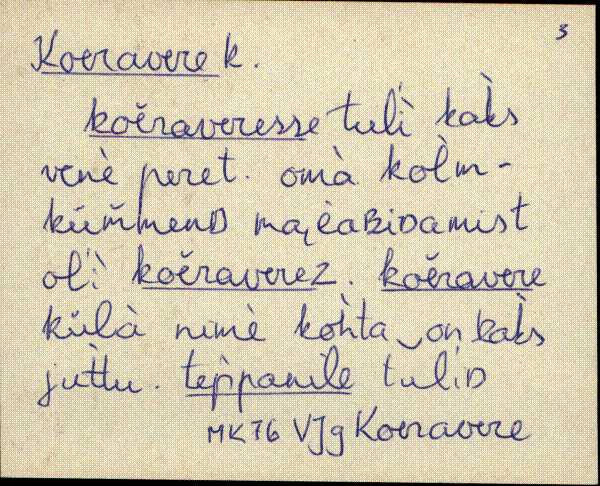 3
Koeravere k.
koĕraveresse tuĺì kàks
venè peret. omà kolm̀-
kümmenD majeaBiDamist
oĺì koĕraverez. koĕravere
külà nimè koh̀ta‿on kàks
jut̀tu. tep̀panile tuliD
MK 76 VJg Koeravere